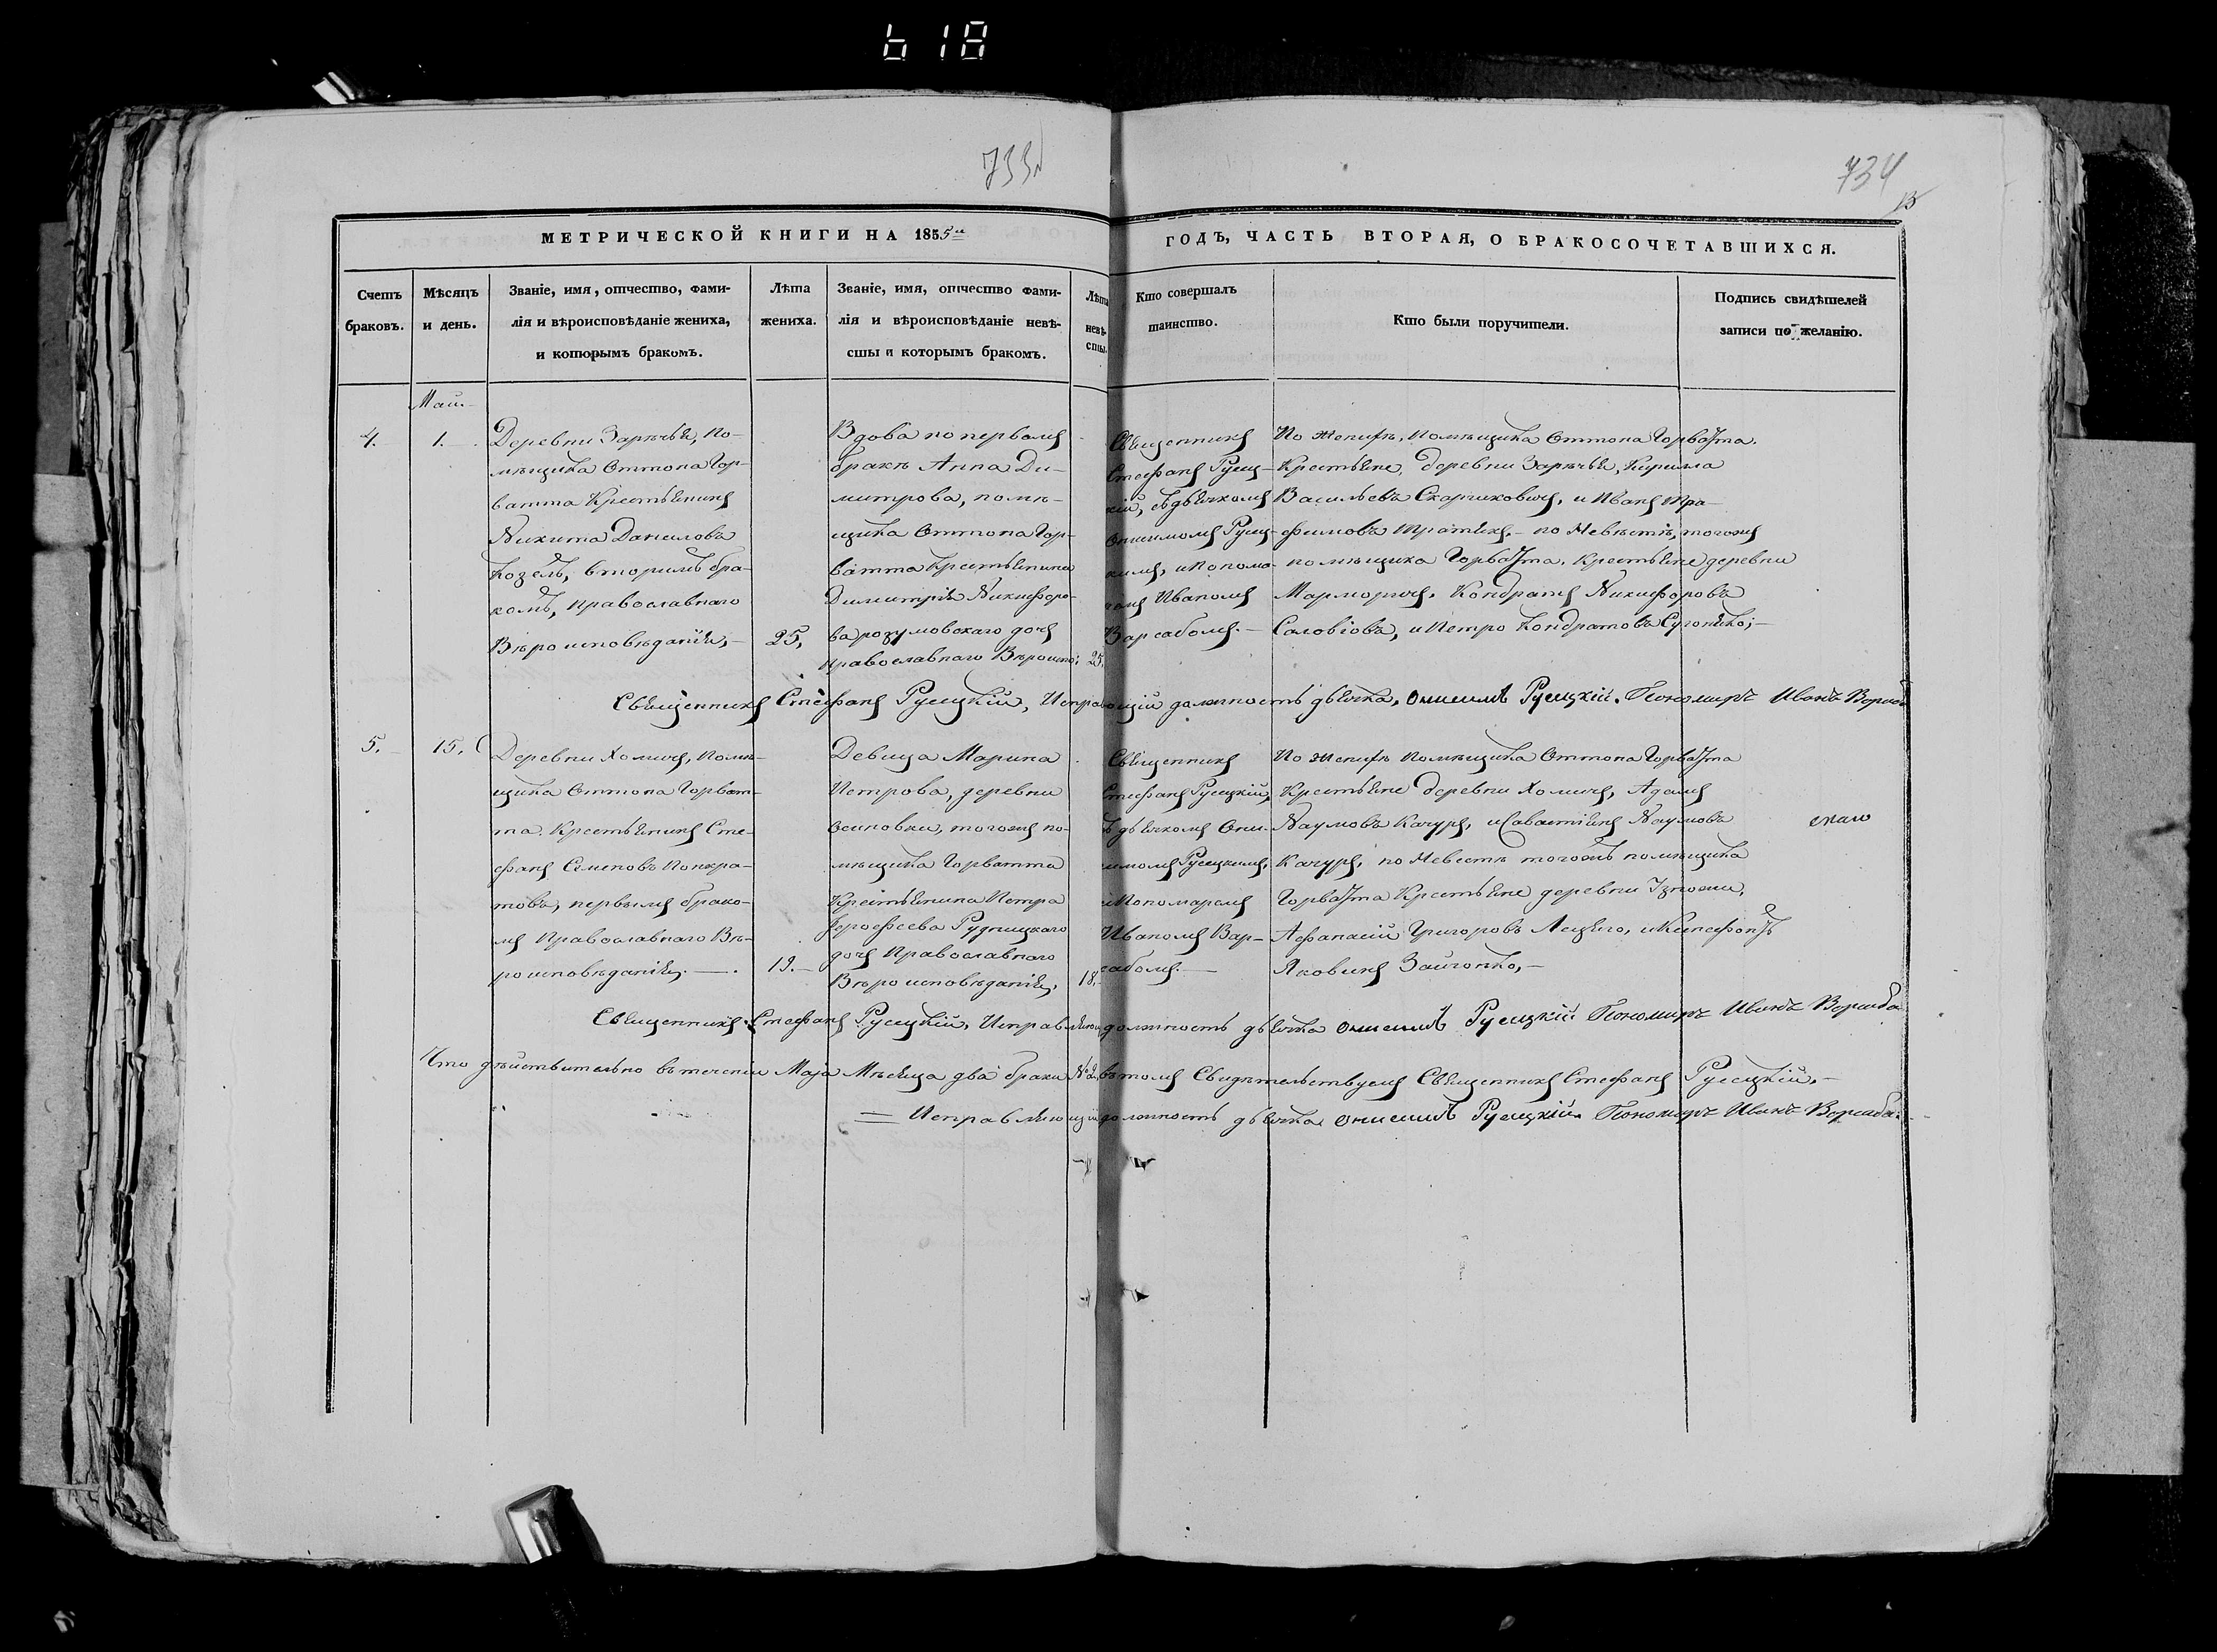 618
733
734
13
МЕТРИЧЕСКОЙ КНИГИ НА 1855й
ГОДЪ, ЧАСТЬ ВТОРАЯ, О БРАКОСОЧЕТАВШИХСЯ.
Счетъ
браковъ.
Мѣсяцъ
и день.
Званіе, имя, отчество, фами-
лія и вѣроисповѣданіе жениха,
и которымъ бракомъ.
Лѣта
жениха.
Званіе, имя, отчество фами-
лія и вѣроисповѣданіе невѣ-
сты и которымъ бракомъ.
Лѣта
невѣ-
сты.
Кто совершалъ
таинство.
Кто были поручители.
Подпись свидѣтелей
записи по желанію.
Маій
4.
1.
Деревни Зарѣчья, По-
мѣщика Оттона Гор-
ватта Крестьянинъ
Никита Даниловъ
Козелъ, вторимъ бра-
комъ, православнаго
Вѣроисповѣданія,
25,
Вдова по первомъ
бракѣ Анна Ди-
митрова, помѣ-
щика Оттона Гор-
ватта Крестьянина
Димитрія Никифоро-
ва розумовскаго дочь
православнаго Вѣроиспо:
25.
Священникъ
Стефанъ Русец-
кій, съ дьячкомъ
Онисимомъ Русец-
кимъ, и Понома-
ремъ Иваномъ
Варсабомъ.
По Женихѣ, Помѣщика Оттона Горватта.
Крестьяне, деревни Зарѣчья, Кирилла
Васильевъ Скарчиковичъ, и Иванъ Тра-
фимовъ, по Невѣстѣ, тогожъ
помѣщика Горватта. Крестьяне деревни
Кондратъ Никифоровъ
Саловіовъ, и Петро Кондратовъ
Священникъ Стефанъ Русецкій, Исправляющій должность дьячка, Онисимъ Русецкій. Пономаръ Иванъ
5.
15.
Деревни Хомичъ, Помѣ-
щика Оттона Горват-
та. Крестьянинъ Сте-
фанъ Семеновъ Понкра-
товъ, первымъ брако-
мъ Православнаго Вѣ-
роисповѣданія.
19.
Девица Марина
Петрова, деревни
Осиповки, тогожъ по-
мѣщика Горватта
Крестьянина Петра
Ерофеева Рудницкаго
дочь Православнаго
Вѣроисповѣданія,
18.
Священникъ
Стефанъ Русецкій,
съ дьячкомъ Они-
симомъ Русецкимъ,
и Пономаремъ
Иваномъ Вар-
сабомъ.
По Женихѣ Помѣщика Оттона Горватта
Крестьяне деревни Хомичъ, Адамъ
Наумовъ Качуръ, и Савастіянъ Наумовъ
Качуръ, по Невестѣ тогожъ помѣщика
Горватта Крестьяне деревни
Афанасій Григоровъ
Яковинъ
Священникъ Стефанъ Русецкій, Исправляющій должность дьячка Онисимъ Русецкій Пономаръ Иванъ
Что дѣйствительно въ теченіи Маја Мѣсяца два браки № 2, въ томъ Свидѣтельствуемъ Священникъ Стефанъ Русецкій.
Исправляющій должность дьячка Онисимъ Русецкій. Пономаръ Иванъ